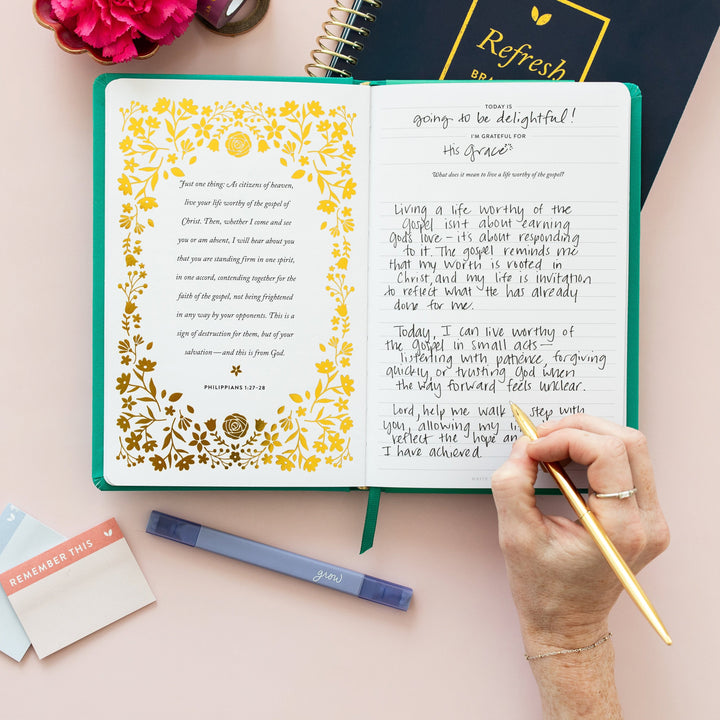 Refresh
TODAY IS
going to be delightful!
I'M GRATEFUL FOR
His Grace
What does it mean to live a life worthy of the gospel?
Just one thing: As citizens of heaven,
live your life worthy of the gospel of
Christ. Then, whether I come and see
you or am absent, I will hear about you
that you are standing firm in one spirit,
in one accord, contending together for the
faith of the gospel, not being frightened
in any way by your opponents. This is a
sign of destruction for them, but of your
salvation—and this is from God.
PHILIPPIANS 1:27–28
Living a life worthy of the
gospel isn't about earning
God's love – it's about responding
to it. The gospel reminds me
that my worth is rooted in
Christ, and my life is invitation
to reflect what He has already
done for me.
Today, I can live worthy of
the gospel in small acts—
listening with patience, forgiving
quickly, or trusting God when
the way forward feels unclear.
Lord, help me walk step with
you, allowing my
reflect the hope
I have achieved.
REMEMBER THIS
grow